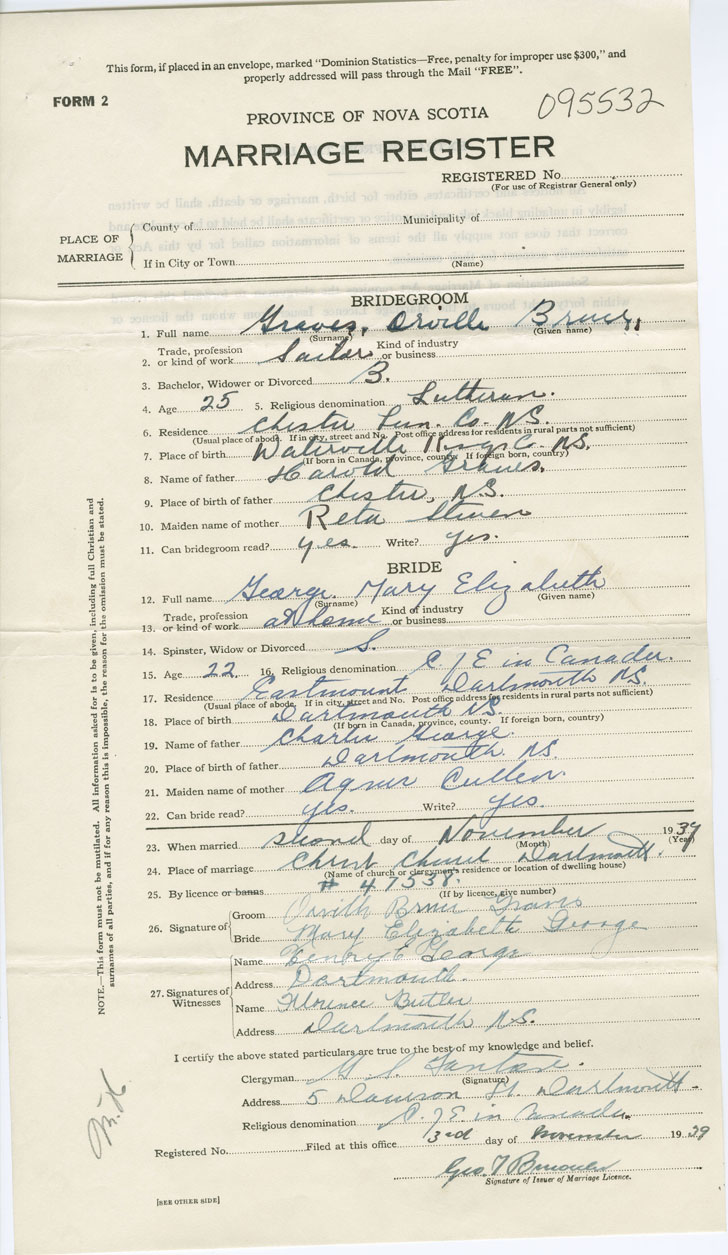 This form, if placed in an envelope, marked "Dominion Statistics—Free, penalty for improper use $300," and
properly addressed will pass through the Mail "FREE".
FORM 2
095532
PROVINCE OF NOVA SCOTIA
MARRIAGE REGISTER
REGISTERED No.
(For use of Registrar General only)
PLACE OF MARRIAGE
County of Municipality of
If in City or Town
(Name)
BRIDEGROOM
1. Full name Graves, Orville Bruce,
(Surname) (Given name)
2. Trade, profession or kind of work Sailor Kind of industry or business
3. Bachelor, Widower or Divorced B.
4. Age 25 5. Religious denomination Lutheran.
6. Residence Chester Lun. Co. N.S.
(Usual place of abode. If in city, street and No. Post office address for residents in rural parts not sufficient)
7. Place of birth Waterville Kings Co. N.S.
(If born in Canada, province, county. If foreign born, country)
8. Name of father Harold Graves.
9. Place of birth of father Chester, N.S.
10. Maiden name of mother Reta
11. Can bridegroom read? yes. Write? yes.
BRIDE
12. Full name George. Mary Elizabeth
(Surname) (Given name)
13. Trade, profession or kind of work at home Kind of industry or business
14. Spinster, Widow or Divorced S.
15. Age 22 16. Religious denomination C / E in Canada.
17. Residence Eastmount Dartmouth N.S.
(Usual place of abode. If in city, street and No. Post office address for residents in rural parts not sufficient)
18. Place of birth Dartmouth N.S.
(If born in Canada, province, county. If foreign born, country)
19. Name of father Charles George.
20. Place of birth of father Dartmouth. N.S.
21. Maiden name of mother Agnes Cullen.
22. Can bride read? yes. Write? yes
23. When married second day of November 1939
(Month) (Year)
24. Place of marriage Christ Church Dartmouth.
(Name of church or clergymen's residence or location of dwelling house)
25. By licence or banns # 47538.
(If by licence, give number)
26. Signature of
Groom Orville Bruce Graves
Bride Mary Elizabeth George
27. Signatures of Witnesses
Name Henry E George
Address Dartmouth.
Name Florence Butler
Address Dartmouth N.S.
I certify the above stated particulars are true to the best of my knowledge and belief.
Clergyman
(Signature)
Address 5 Dawson St. Dartmouth.
Religious denomination C. / E in Canada.
Registered No. Filed at this office 3rd day of November 1939
Geo.
Signature of Issuer of Marriage Licence.
[SEE OTHER SIDE]
NOTE.—This form must not be mutilated. All information asked for is to be given, including full Christian and
surnames of all parties, and if for any reason this is impossible, the reason for the omission must be stated.